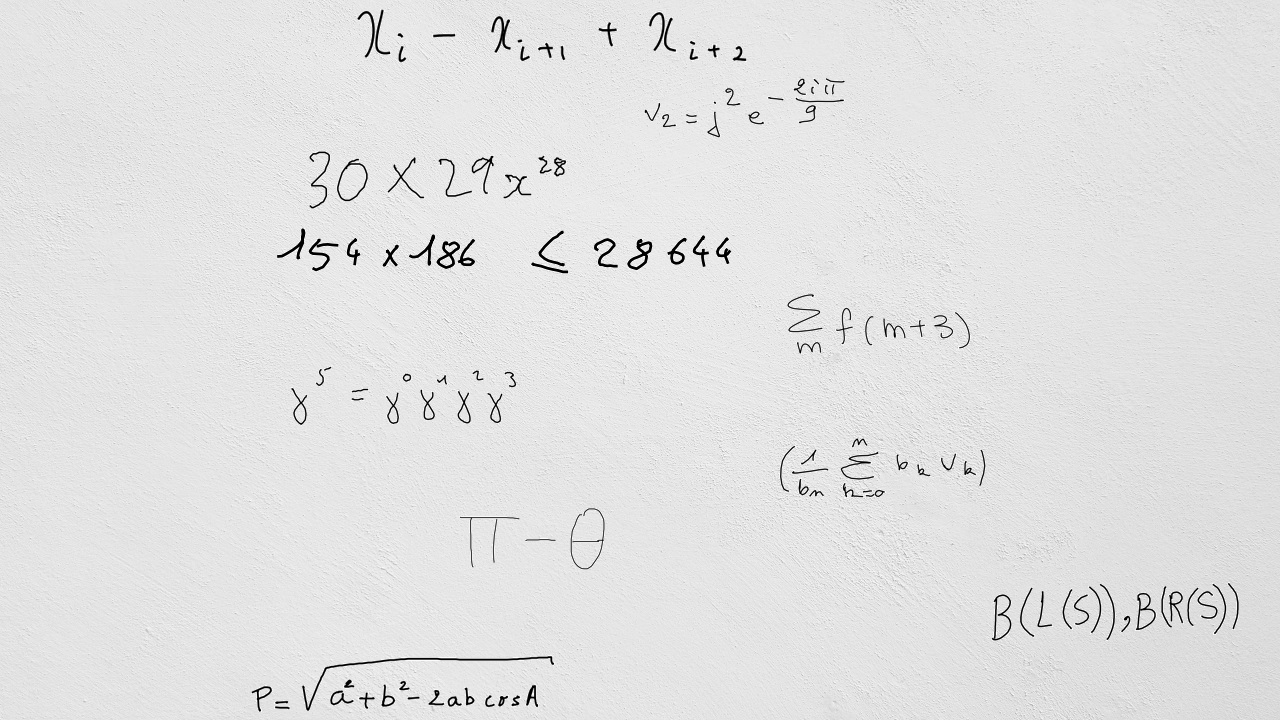 x_i - x_{i+1} + x_{i+2}
v_2 = j^2 e^{-\frac{2iπ}{9}}
30 × 29x^{28}
154 × 186 ≤ 28644
\sum_m f(m+3)
γ^5 = γ^0 γ^1 γ^2 γ^3
(\frac{1}{b_n} \sum_{k=0}^{n} b_k v_k)
π - θ
B(L(S)),B(R(S))
P = \sqrt{a^2 + b^2 - 2ab cos A}